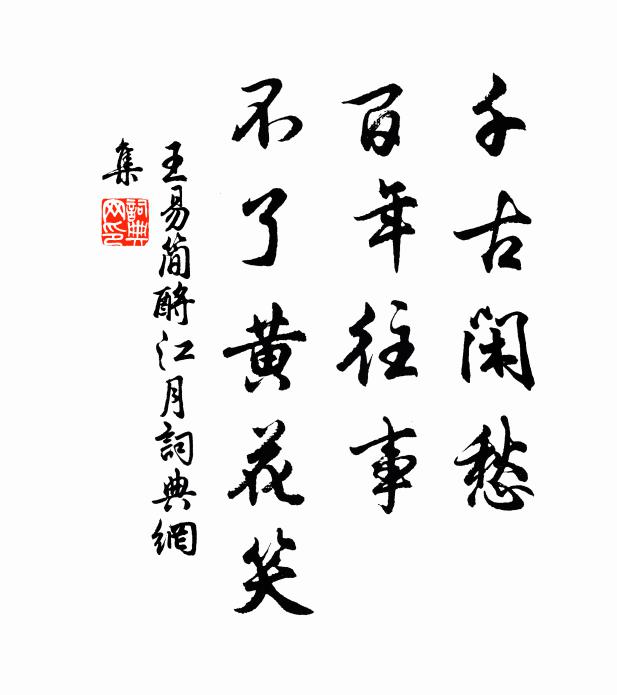 千古閑愁
百年往事
不了黄花笑
王易簡酹江月詞典網
集
詞典
网印